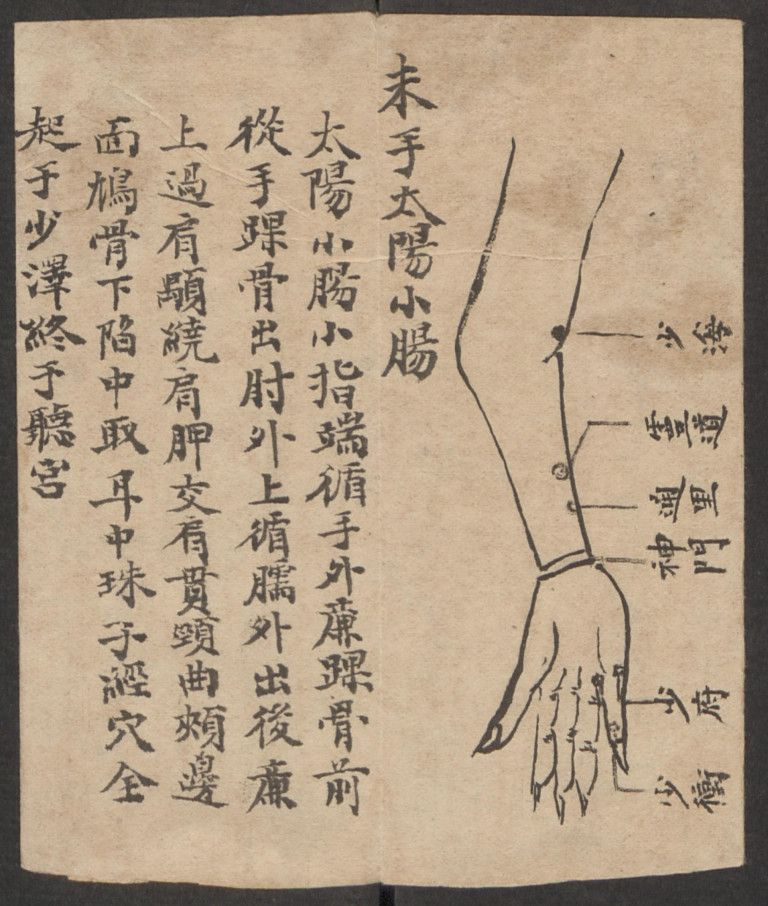 少海
靈道
通里
神門
少府
少衝
未手太陽小腸
太陽小腸小指端循手外廉踝骨前
從手踝骨出肘外上循臑外出後廉
上過肩顒繞肩胛交肩貫頸曲頰邊
面鳩骨下陷中取耳中珠子經穴全
起于少澤終于聽宮